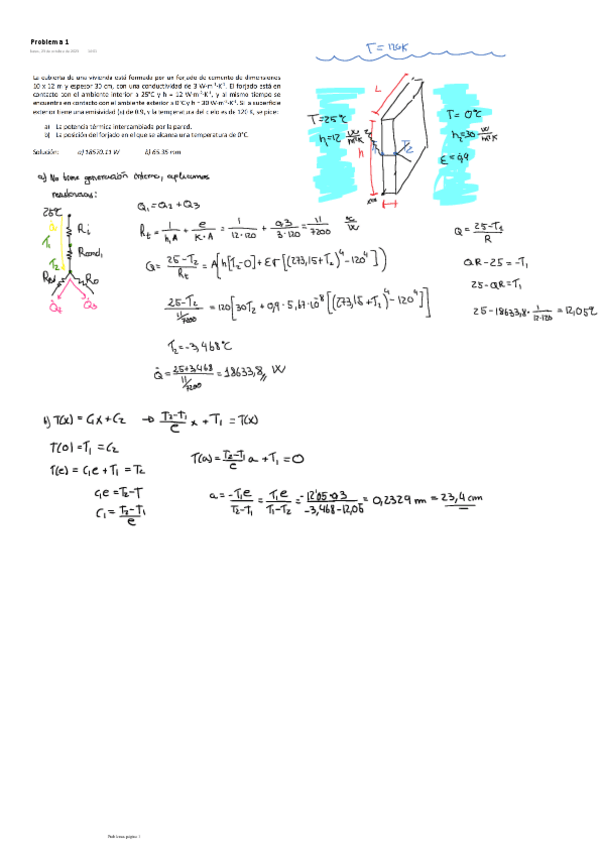 Problema 1
La cubierta de una vivienda está formada por un forjado de cemento de dimensiones
10 x 12 m y espesor 30 cm, con una conductividad de 3 W·m⁻¹·K⁻¹. El forjado está en
contacto con el ambiente interior a 25°C y h = 12 W·m⁻²·K⁻¹, y al mismo tiempo se
encuentra en contacto con el ambiente exterior a 0°C y h = 30 W·m⁻²·K⁻¹. Si la superficie
exterior tiene una emisividad de 0.9, y la temperatura del cielo es de 120 K, se pide:
a) La potencia térmica intercambiada por la pared.
b) La posición del forjado en el que se alcanza una temperatura de 0°C.
Solución: a) 18620.11 W b) 65.35 mm
T = 120K
L
T=25°C
h=12 W/m²K
h
T₂
T= 0°C
h₂=30 W/m²K
ε=0,9
a) No tiene generación interna, aplicamos
resistencias:
25°C
Ri
T₁
Rcond,
T₂
Q₁=Q₂+Q₃
Rt = 1/(h₁A) + e/(K·A) = 1/(12·120) + 0,3/(3·120) = 11/7200 °C/W
Q = (25-T₂)/Rt = A[h[T₂-0] + εσ[(273,15+T₂)⁴-120⁴]]
(25-T₂)/(11/7200) = 120[30T₂ + 0,9·5,67·10⁻⁸[(273,15+T₂)⁴-120⁴]]
T₂=-3,468°C
Q̇ = (25+3,468)/(11/7200) = 18633,8 W
Q = (25-T₁)/R
QR-25 = -T₁
25-QR=T₁
25-18633,8·1/(12·120) = 12,05°C
b) T(x) = C₁x+C₂ → (T₂-T₁)/e x + T₁ = T(x)
T(0) = T₁ = C₂
T(e) = C₁e + T₁ = T₂
C₁e = T₂-T
C₁ = (T₂-T₁)/e
T(a) = (T₂-T₁)/e a + T₁ = 0
a = -T₁e/(T₂-T₁) = T₁e/(T₁-T₂) = -12'05·0'3/(-3,468-12,05) = 0,2329 m = 23,4 cm